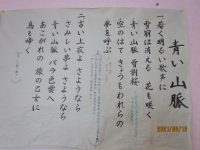 青い山脈
一 若く明るい歌声に
雪崩は消える 花も咲く
青い山脈 雪割桜
空のはて きょうもわれらの
夢を呼ぶ
二 古い上衣よ さようなら
さみしい夢よ さようなら
青い山脈 バラ色雲へ
あこがれの 旅の乙女に
鳥も啼く